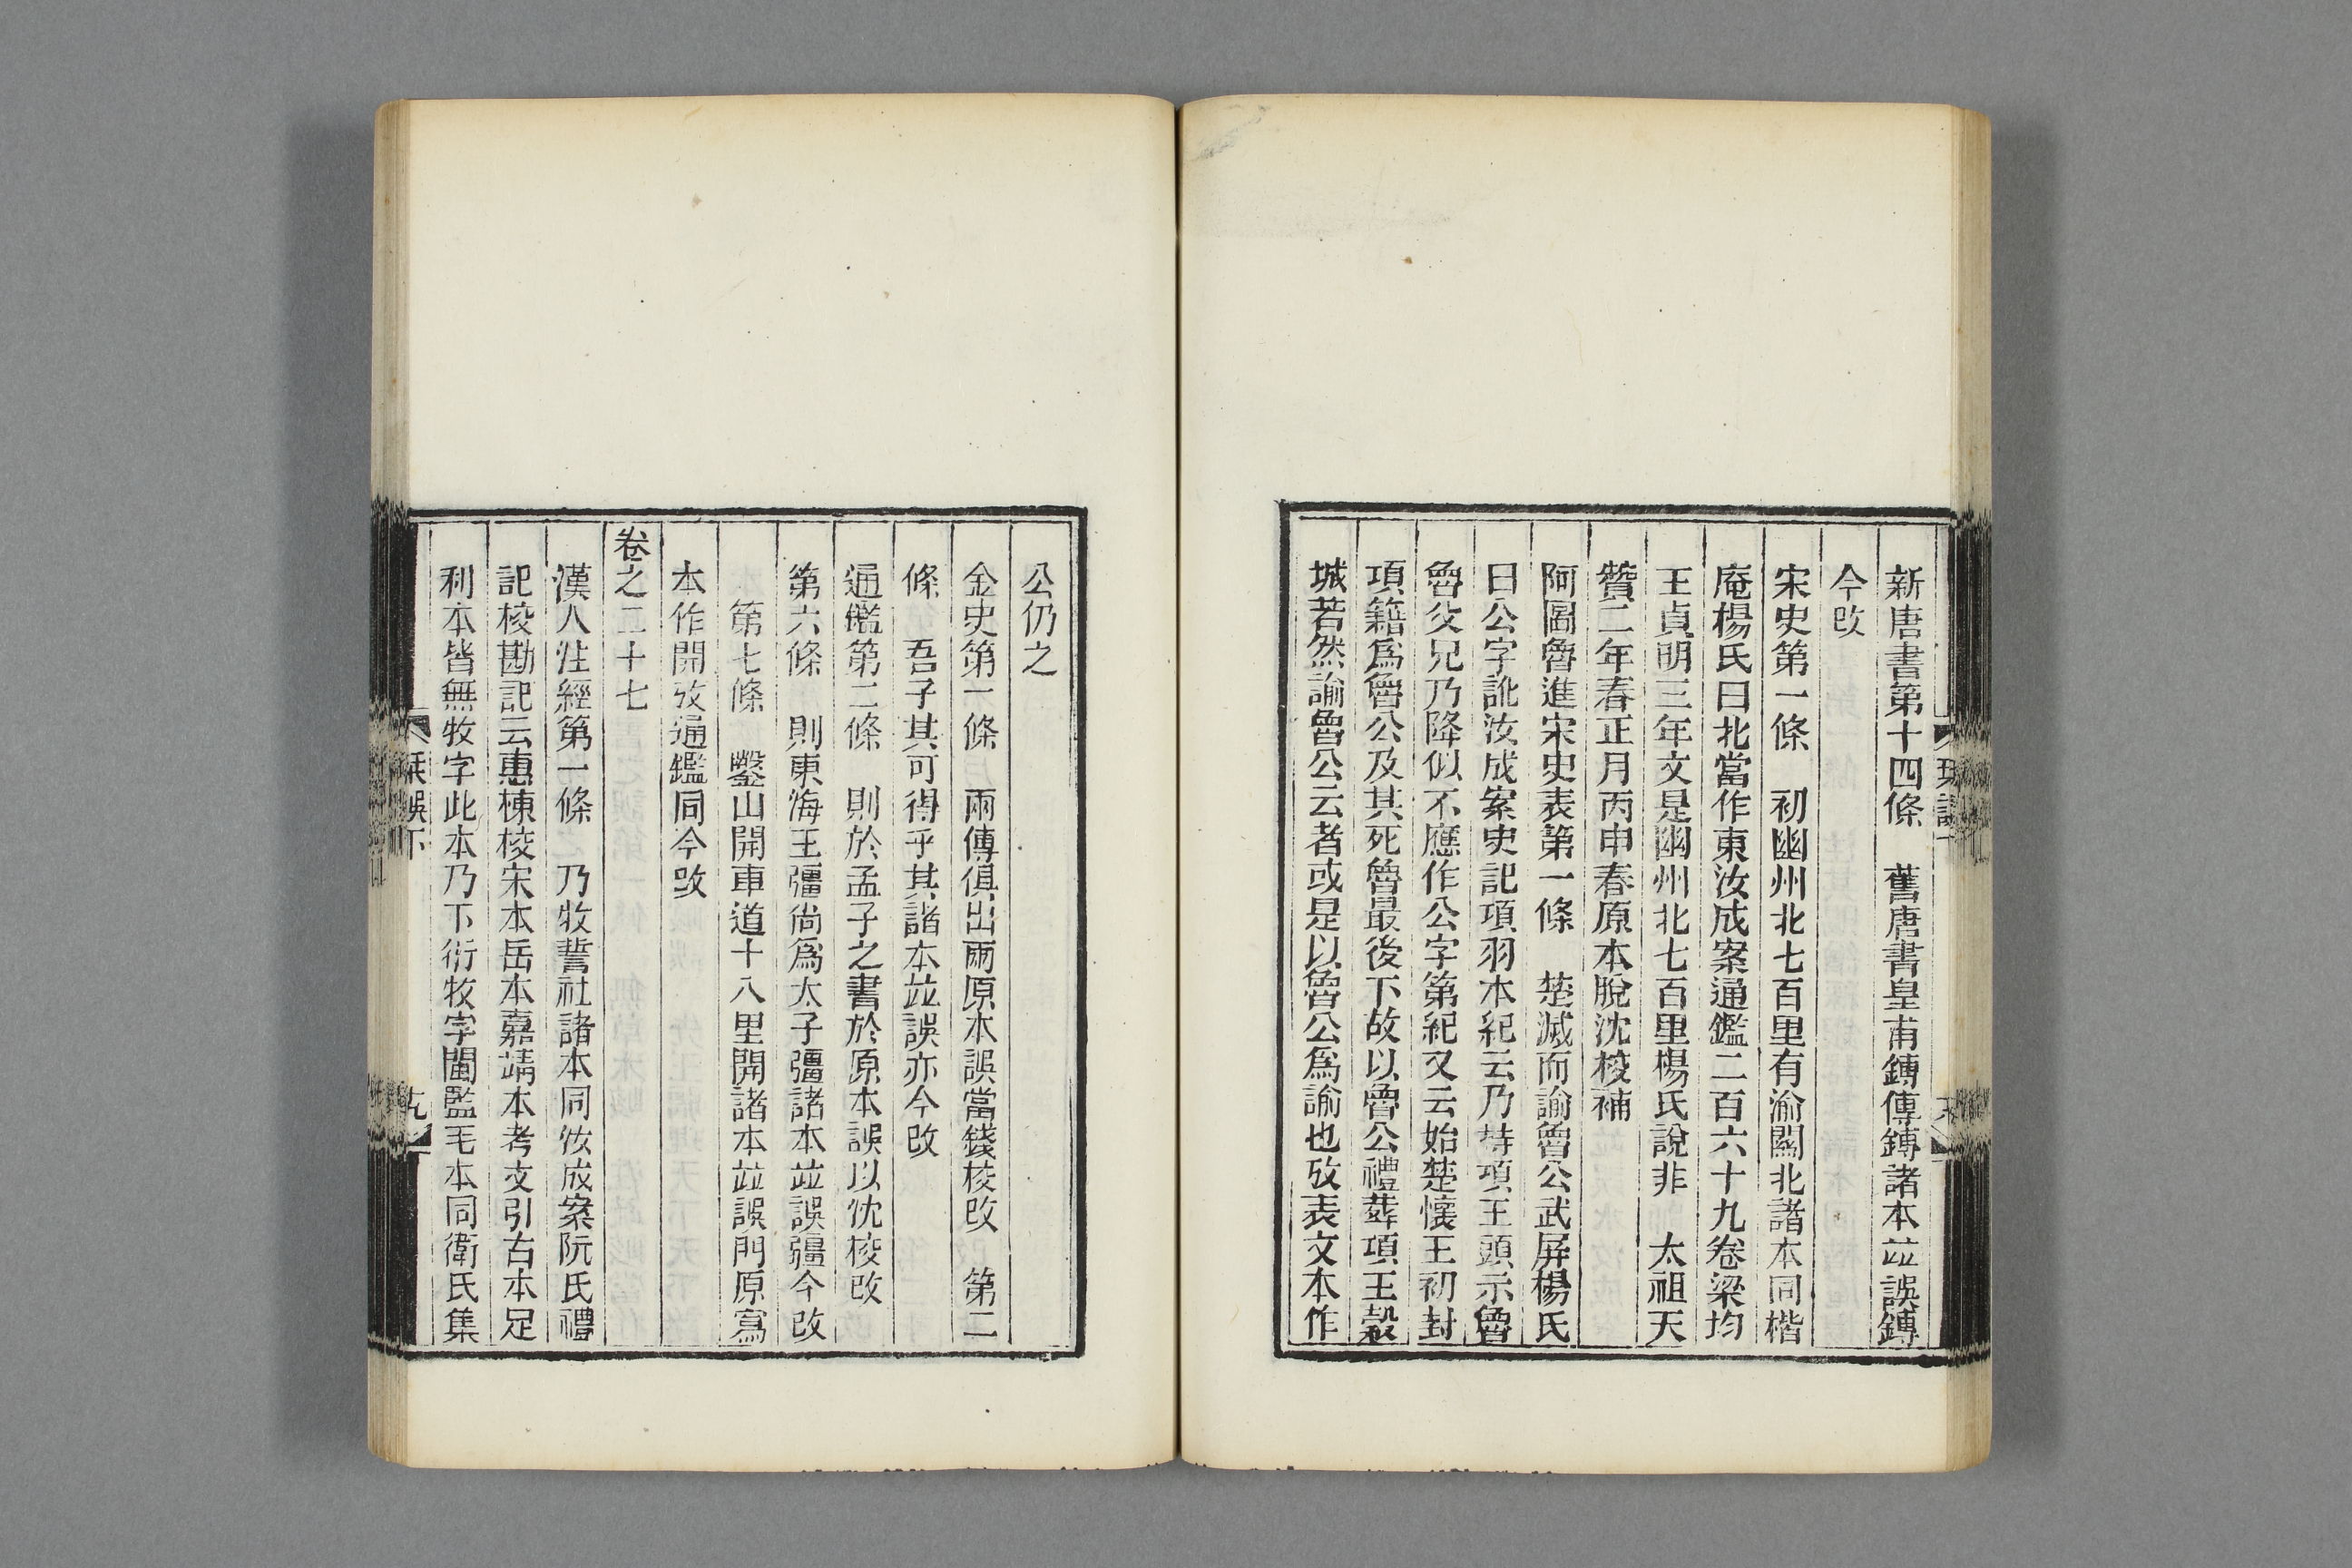 新唐書第十四條　舊唐書皇甫鎛傳鎛諸本竝誤鏄
今改
宋史第一條　初幽州北七百里有渝關北諸本同楷
庵楊氏曰北當作東汝成案通鑑二百六十九卷梁均
王貞明三年文是幽州北七百里楊氏說非　太祖天
贊二年春正月丙申春原本脫沈校補
阿圖魯進宋史表第一條　楚滅而諭魯公武屏楊氏
曰公字訛汝成案史記項羽本紀云乃持項王頭示魯
魯父兄乃降似不應作公字第紀又云始楚懷王初封
項籍爲魯公及其死魯最後下故以魯公禮葬項王穀
城若然諭魯公云者或是以魯公爲諭也攷表文本作
公仍之
金史第一條　兩傳俱出兩原本誤當錢校改　第二
條　吾子其可得乎其諸本竝誤亦今改
通鑑第二條　則於孟子之書於原本誤以沈校改
第六條　則東海王彊尚爲太子彊諸本竝誤疆今改
　第七條　鑿山開車道十八里開諸本竝誤門原寫
本作開攷通鑑同今改
卷之二十七
漢人注經第一條　乃牧誓社諸本同汝成案阮氏禮
記校勘記云惠棟校宋本岳本嘉靖本考文引古本足
利本皆無牧字此本乃下衍牧字閩監毛本同衛氏集
栞誤下